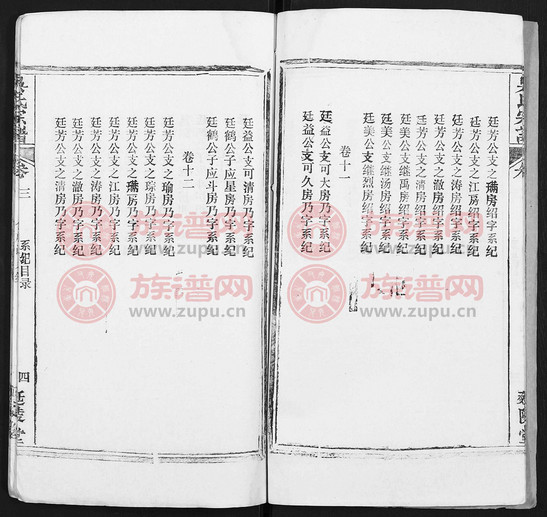 廷芳公支之㻛房绍字系纪
廷芳公支之江房绍字系纪
廷芳公支之涛房绍字系纪
廷芳公支之澈房绍字系纪
廷芳公支之清房绍字系纪
廷美公支继禹房绍字系纪
廷美公支继汤房绍字系纪
廷美公支继烈房绍字系纪
卷十一
廷益公支可大房乃字系纪
廷益公支可久房乃字系纪
延陵堂
廷益公支可清房乃字系纪
廷鹤公子应星房乃字系纪
廷鹤公子应斗房乃字系纪
卷十二
廷芳公支之瑜房乃字系纪
廷芳公支之琮房乃字系纪
廷芳公支之㻛房乃字系纪
廷芳公支之江房乃字系纪
廷芳公支之涛房乃字系纪
廷芳公支之澈房乃字系纪
廷芳公支之清房乃字系纪
吴氏宗谱
卷三
系纪目录
四
延陵堂
族谱网
www.zupu.cn
族谱网
www.zupu.cn